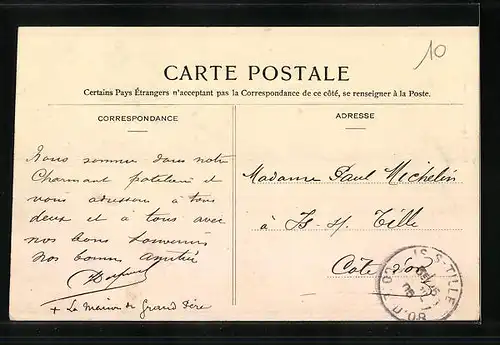 10
CARTE POSTALE
Certains Pays Étrangers n'acceptant pas la Correspondance de ce côté, se renseigner à la Poste.
CORRESPONDANCE
Nous sommes dans notre
Charmant patelin et
vous adressons à tous
deux et à tous avec
nos bons souvenirs
nos bonnes amitiés
+ La Maison de Grand Père
ADRESSE
Madame Paul Michelin
à Is-s/ Tille
Côte d'or
IS-S-TILLE